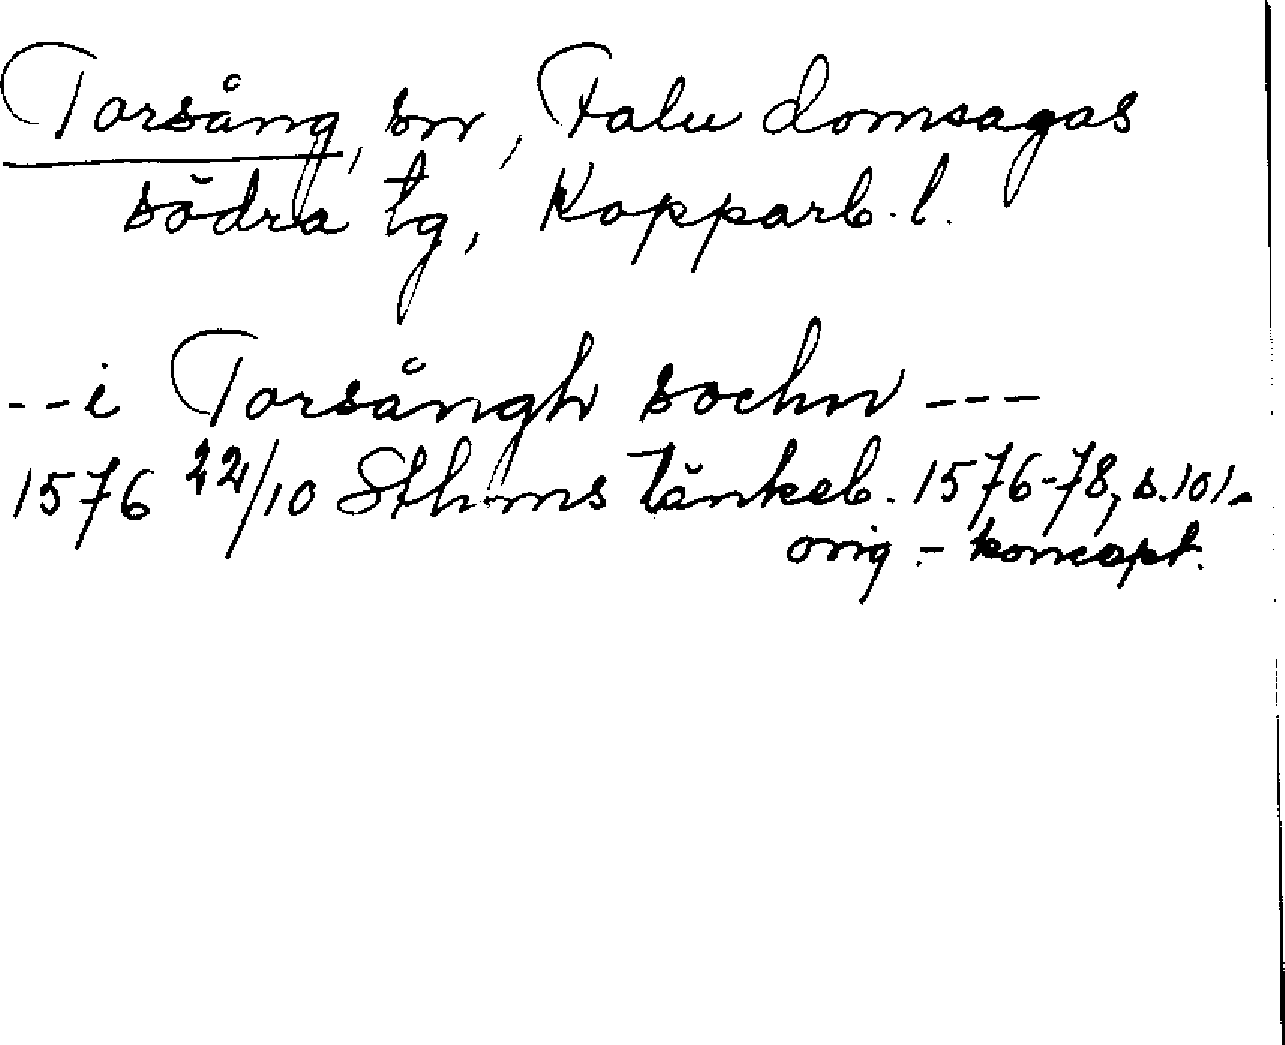 Torsång, sn, Falu domsagas
södra tg, Kopparb. l.
--i Torsångh sochn ---
1576 22/10 Sthms tänkeb. 1576-78, s. 101.
orig.- koncept.